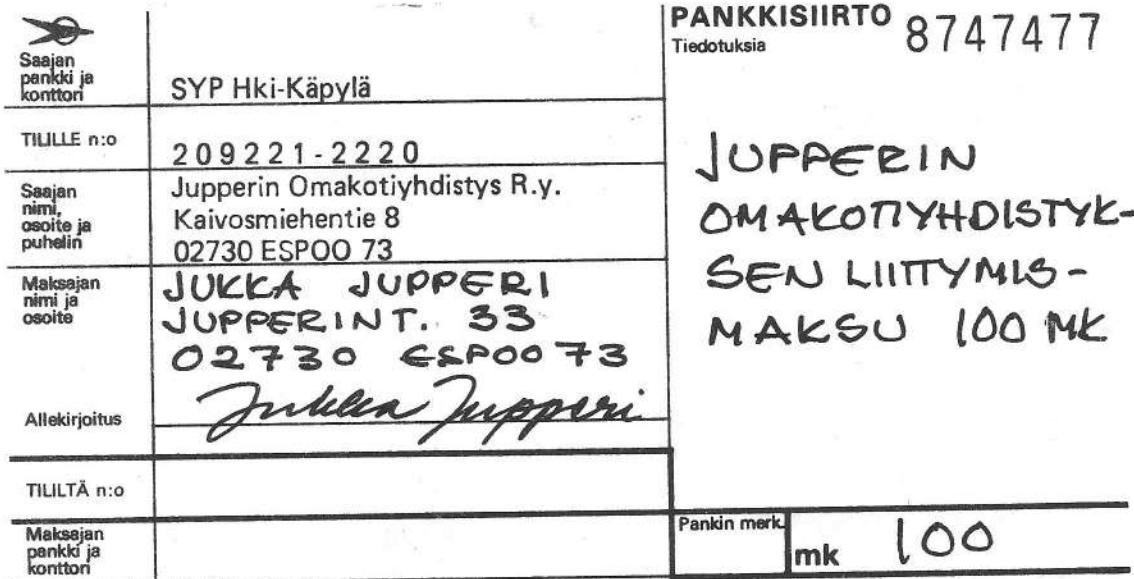 PANKKISIIRTO 8747477
Tiedotuksia
Saajan
pankki ja
konttori
SYP Hki-Käpylä
TILILLE n:o
209221-2220
Saajan
nimi,
osoite ja
puhelin
Jupperin Omakotiyhdistys R.y.
Kaivosmiehentie 8
02730 ESPOO 73
Maksajan
nimi ja
osoite
JUKKA JUPPERI
JUPPERINT. 33
02730 ESPOO 73
Allekirjoitus
Jukka Jupperi
TILILTÄ n:o
Maksajan
pankki ja
konttori
JUPPERIN
OMAKOTIYHDISTYK-
SEN LIITTYMIS-
MAKSU 100 MK
Pankin merk.
mk 100